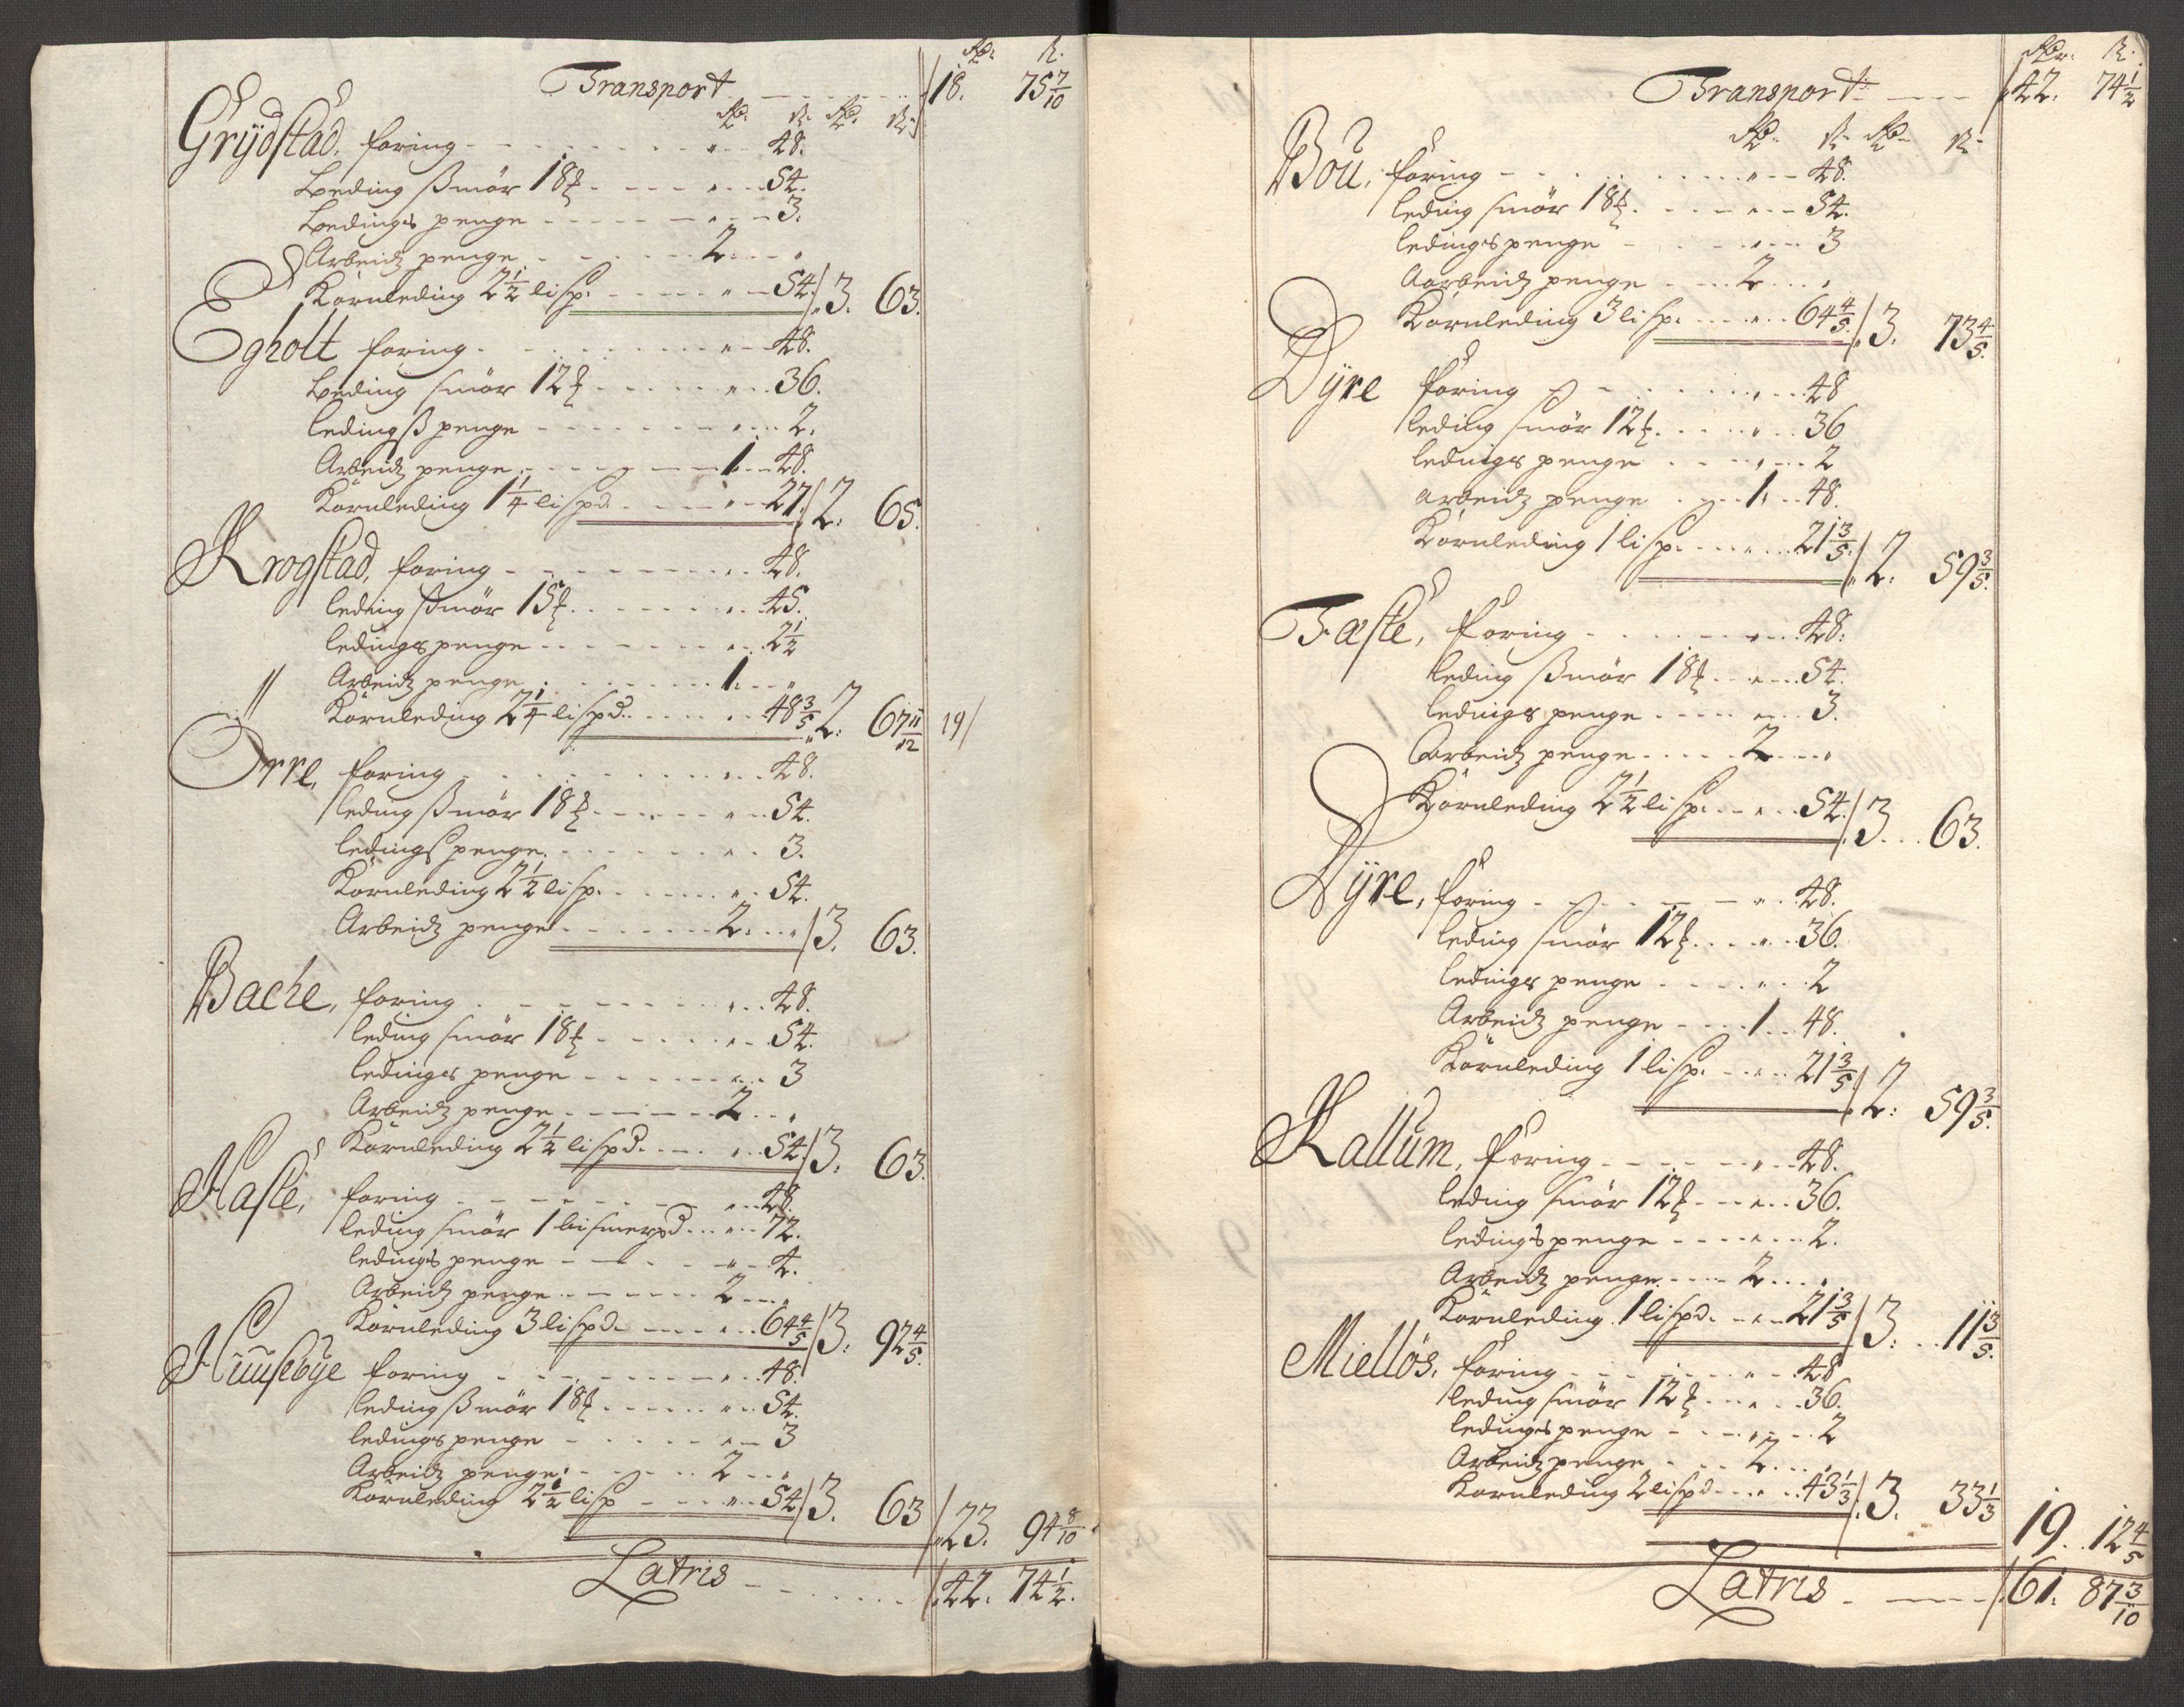 Rdr. ß.
Transport 18. 75 7/10
Rdr. ß. Rdr. ß.
Grydstad. foring 48.
Leding Smör 18 54.
Ledings penge 3.
Arbeidz penge 2.
Kornleding 2½ lisp. 54. 3. 63.
Egholt foring 48.
Leding smör 12 36.
ledings penge 2.
Arbeidz penge 1. 48.
Kornleding 1¼ lispd. 27. 2. 65.
Krogstad, foring 48.
leding Smör 15 45.
ledings penge 2½
Arbeidz penge 1.
Kornleding 2¼ lispd. 48 3/5 2. 67 11/12 19/
Örre, foring 48.
leding Smör 18 54.
ledings penge 3.
Kornleding 2½ lisp. 54.
Arbeidz penge 2. 3. 63.
Bache, foring 48.
leding smör 18 54.
ledings penge 3
Arbeidz penge 2.
Kornleding 2½ lispd. 54. 3. 63.
Hasle, foring 48.
leding smör 1 bismerpd. 72.
ledings penge 4.
Arbeidz penge 2
Kornleding 3 lispd. 64 4/5 3. 92 4/5.
Huusebye foring 48.
leding Smör 18 54.
ledings penge 3
Arbeidz penge 2
Kornleding 2½ lisp 54. 3. 63 23. 94 8/10
Latris 42. 74½.
Rdr. ß.
Transport 42. 74½
Rdr. ß. Rdr. ß.
Boü, foring 48.
leding smör 18 54.
ledings penge 3
Aarbeidz penge 2
Kornleding 3 lisp. 64 4/5. 3. 73 4/5.
Dÿre foring 48
leding smör 12 36
ledings penge 2
arbeidz penge 1. 48.
Kornleding 1 lisp. 21 3/5. 2. 59 3/5.
Tasle, foring 48.
leding Smör 18 54.
ledings penge 3.
Aarbeidz penge 2
Kornleding 2½ lisp. 54. 3. 63.
Dÿre, foring 48.
leding smör 12 36.
ledings penge 2
Arbeidz penge 1 48.
Kornleding 1 lisp. 21 3/5. 2. 59 3/5.
Kallüm, foring 48.
leding smör 12 36.
ledings penge 2.
Arbeidz penge 2
Kornleding 1 lispd. 21 3/5 3. 11 3/5.
Miellös, foring 48
leding smör 12 36.
ledings penge 2
Arbeidz penge 2
Kornleding 2 lispd 43 1/3 3. 33 1/3
19. 12 4/5
Latris 61. 87 3/10